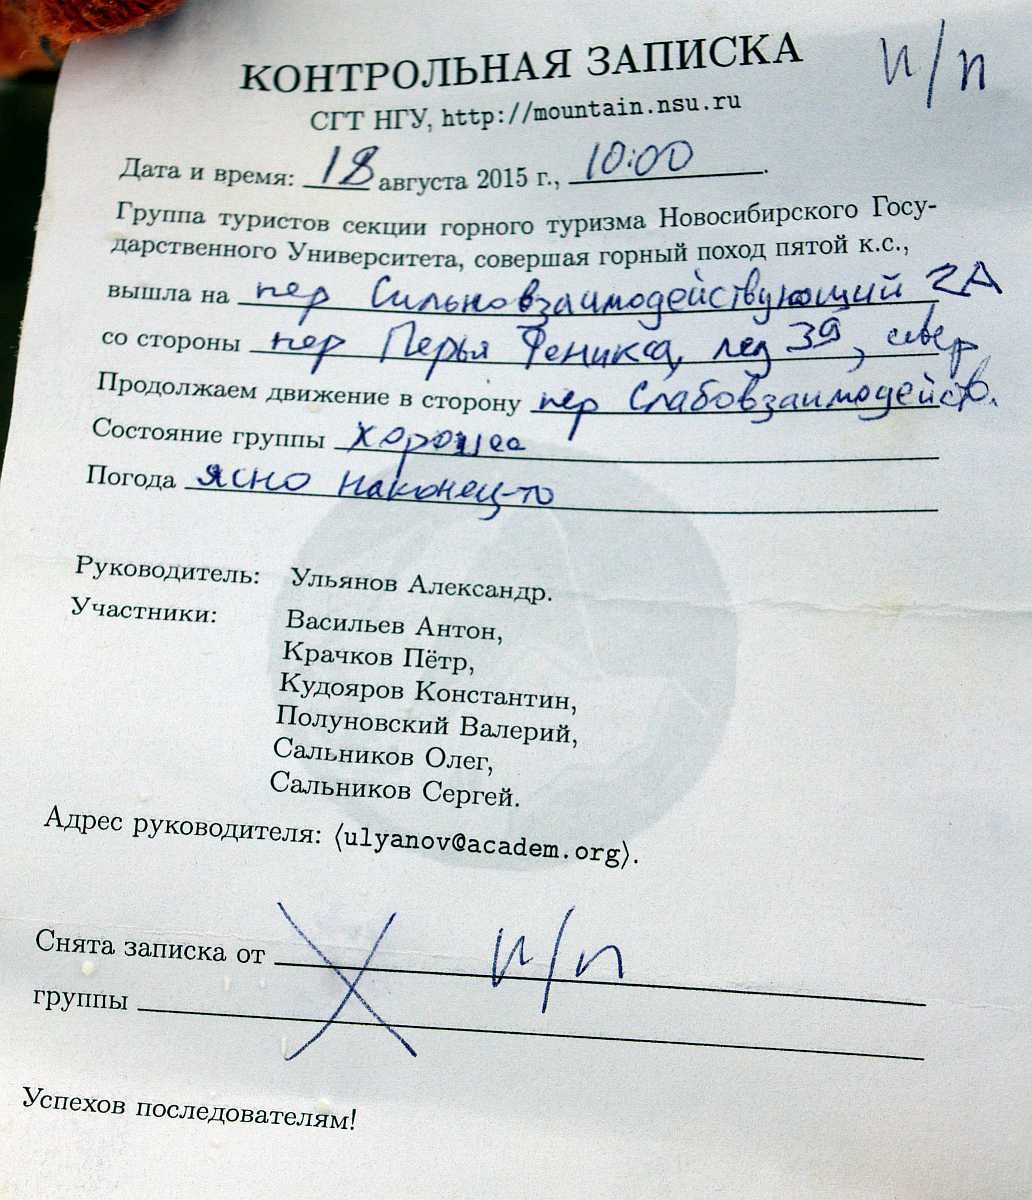 КОНТРОЛЬНАЯ ЗАПИСКА п/п
СГТ НГУ, http://mountain.nsu.ru
Дата и время: 18 августа 2015 г., 10:00.
Группа туристов секции горного туризма Новосибирского Госу-
дарственного Университета, совершая горный поход пятой к.с.,
вышла на пер Сильновзаимодействующий 2А
со стороны пер Перья Феникса, лед 39, север
Продолжаем движение в сторону пер Слабовзаимодейств.
Состояние группы хорошее
Погода ясно наконец-то
Руководитель: Ульянов Александр.
Участники: Васильев Антон,
Крачков Пётр,
Кудояров Константин,
Полуновский Валерий,
Сальников Олег,
Сальников Сергей.
Адрес руководителя: ⟨ulyanov@academ.org⟩.
Снята записка от п/п
группы
Успехов последователям!